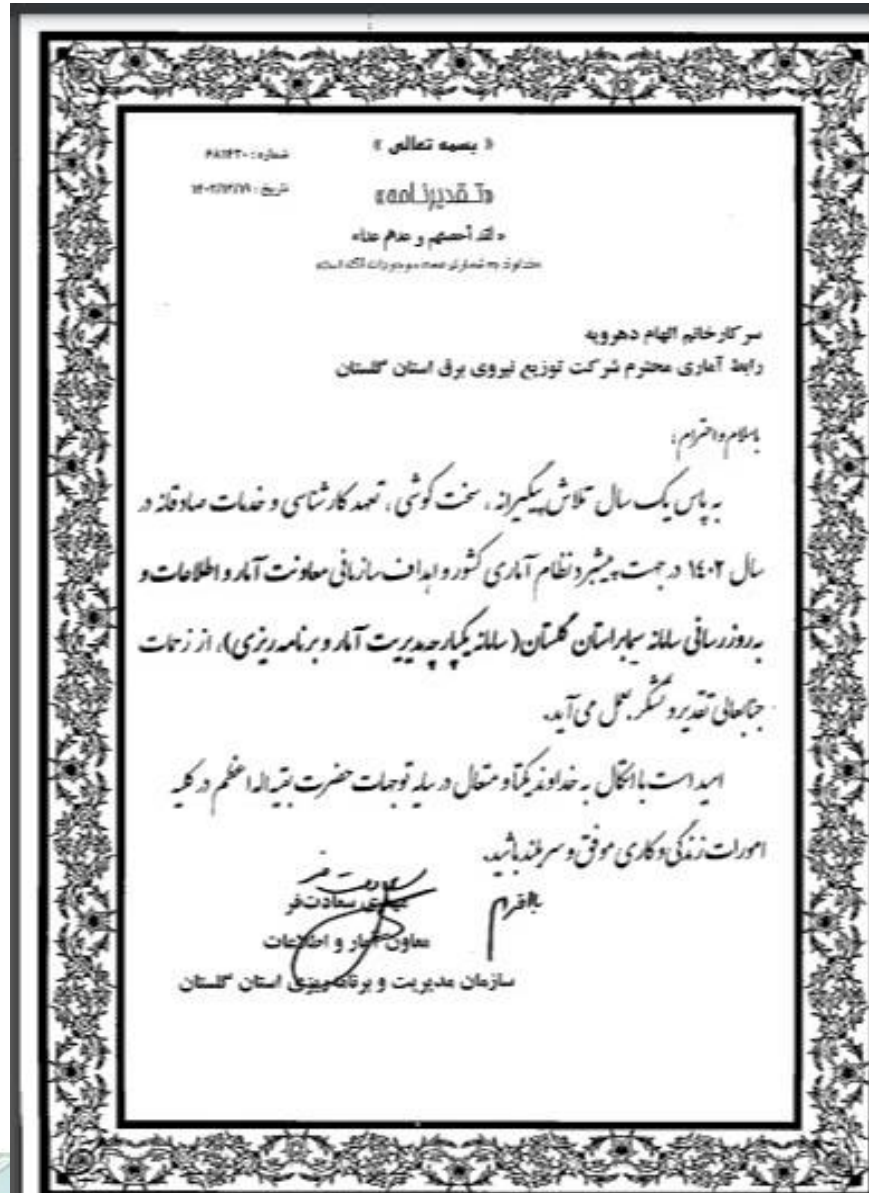 « بسمه تعالی »
شماره : ۴۸۱۴۳۰
تاریخ :
«تـقدیرنـامه»
« لقد أحصیهم و عدهم عدا»
سرکار خانم الهام دهرویه
رابط آماری محترم شرکت توزیع نیروی برق استان گلستان
باسلام و احترام ؛
به پاس یک سال تلاش پیگیرانه ، سخت کوشی ، تعهد کارشناسی و خدمات صادقانه در
سال ١٤٠٢ در جهت پیشبرد نظام آماری کشور و اهداف سازمانی معاونت آمار و اطلاعات و
به روزرسانی سامانه سیمابر استان گلستان( سامانه یکپارچه مدیریت آمار و برنامه ریزی)، از زحمات
جنابعالی تقدیر و تشکر بعمل می آید.
امید است با اتکال به خداوند یکتا و متعال در سایه توجهات حضرت بقیه اله اعظم در کلیه
امورات زندگی و کاری موفق و سربلند باشید.
با احترام
مهدی سعادت‌فر
معاون آمار و اطلاعات
سازمان مدیریت و برنامه‌ریزی استان گلستان